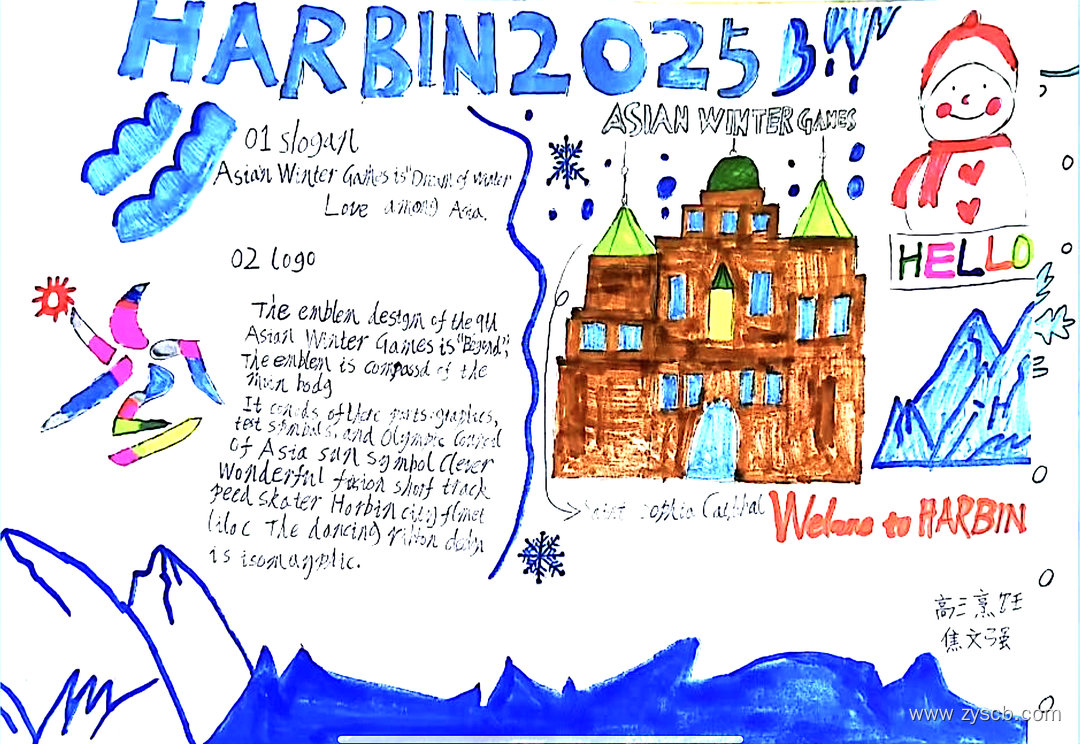 HARBIN2025
ASIAN WINTER GAMES
01 slogan
Asian Winter Games is "Dream of winter
Love among Asia.
02 logo
The emblem design of the 9th
Asian Winter Games is "Beyond",
The emblem is compossd of the
main body
It of parts:graphics,
test symbols, and Olympic Council
of Asia sun symbol Clever
Wonderful fusion short track
peed skater Harbin city flower
lilac The dancing ribbon design
is
HELLO
Saint Sophia
to HARBIN
高三烹饪
焦文强
www.zyscb.com